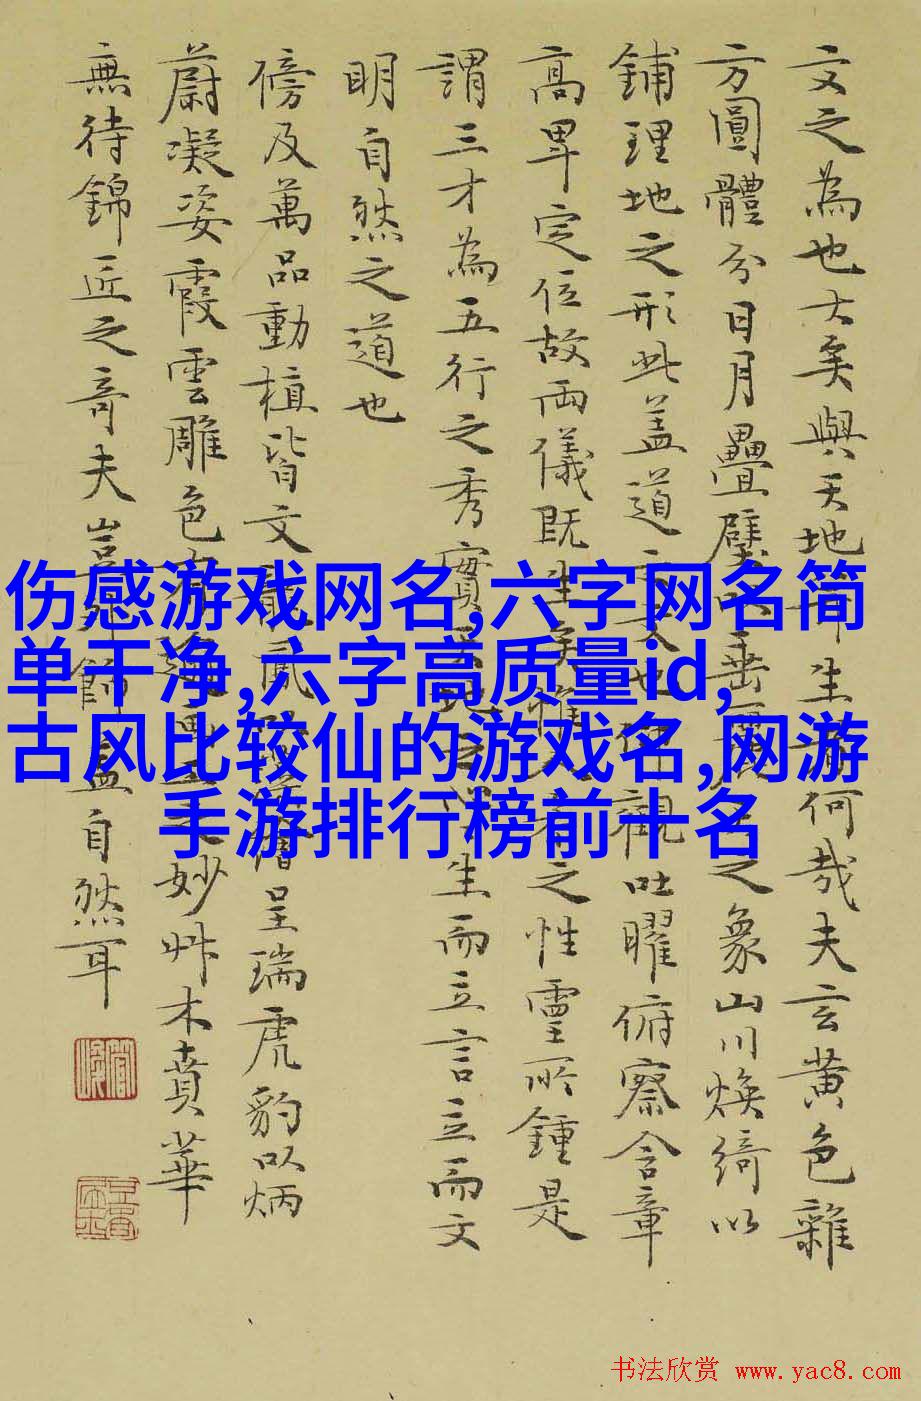 文之為也大矣與天地生何哉夫玄黄色雜
方圓體分日月疊璧垂之象山川煥綺以
鋪理地之形此盖道文也觀吐曜俯察含章
高卑定位故兩儀既生矣惟之性靈所鍾是
謂三才為五行之秀實生而立言立而文
明自然之道也
傍及萬品動植皆文龍鳳呈瑞虎豹以炳
蔚凝姿霞雲雕色有妙艸木賁華
無待錦匠之奇夫豈飾盖自然耳
伤感游戏网名,六字网名简
单干净,六字高质量id,
古风比较仙的游戏名,网游
手游排行榜前十名
书法欣赏 www.yac8.com